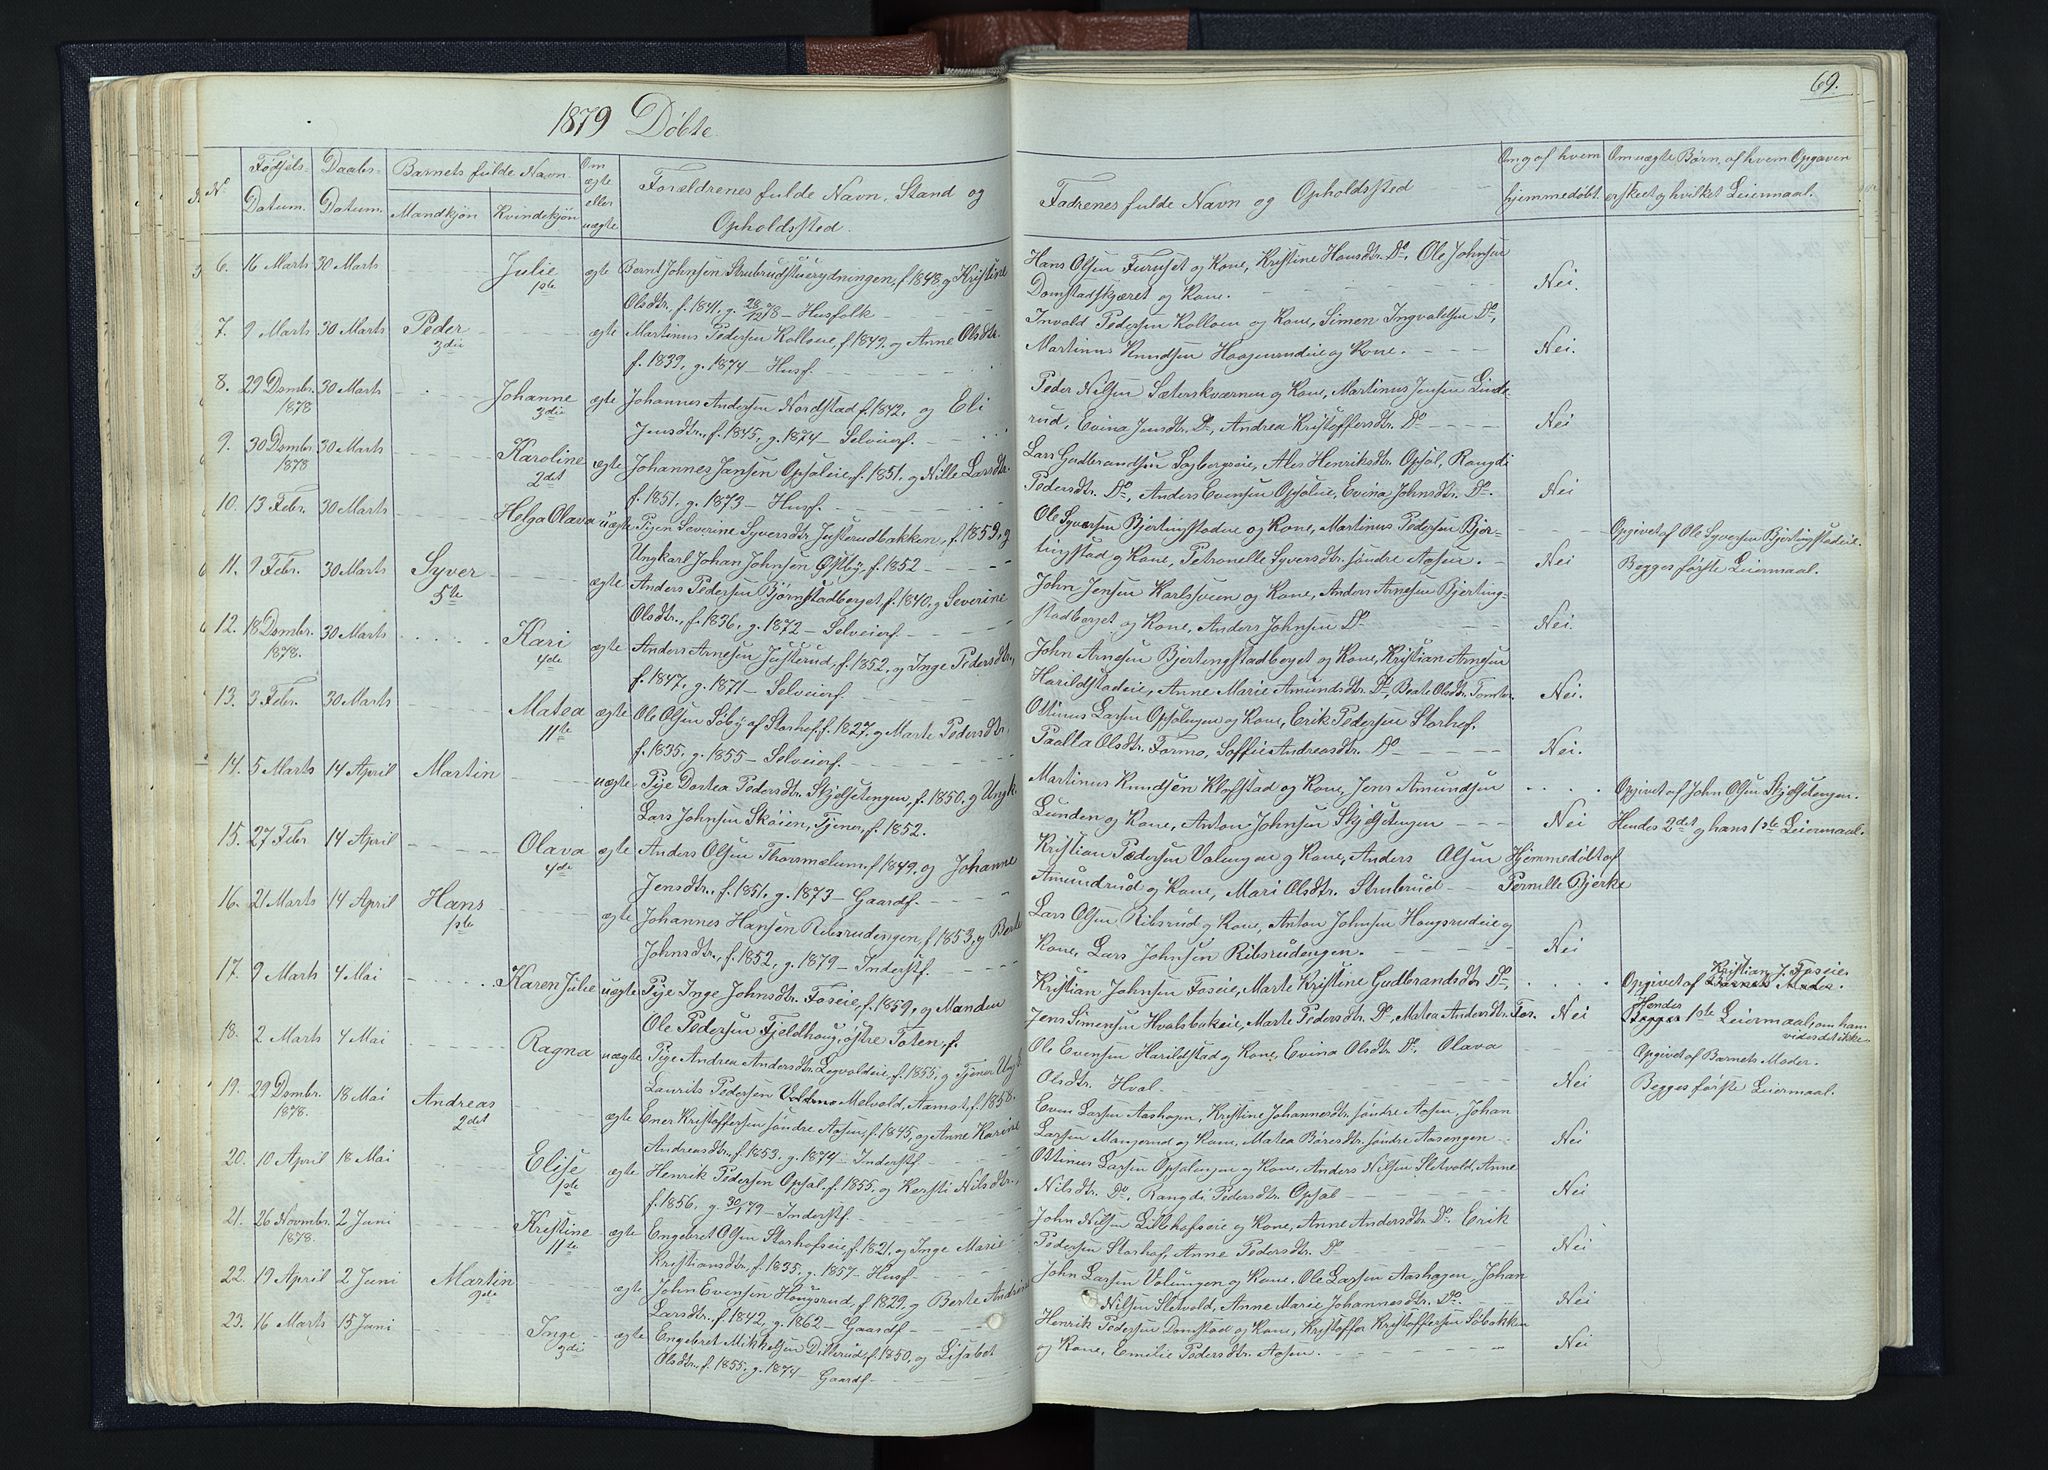 69.
1879 Döbte.
No
Födsels- Datum.
Daabs- Datum.
Barnets fulde Navn.
Mandkjön
Kvindekjön
Om ægte eller uægte
Forældrenes fulde Navn, Stand og Opholdssted.
Fadrenes fulde Navn og Opholdssted
Om og af hvem hjemmedöbt.
Om uægte Börn, af hvem Opgaven er skeet og hvilket Leiermaal.
6. 16 Marts 30 Marts Julie 1ste ægte Bernt Johnsen Strubrudstuerydningen, f. 1848, og Kristine
Olsdtr. f. 1841, g. 28/12 78 – Husfolk
Hans Olsen Furuset og Kone, Kristine Hansdtr. Do, Ole Johnsen
Domstadskjæret og Kone. Nei.
7. 9 Marts 30 Marts Peder 3die ægte Martinus Pedersen Kolloeie, f. 1842, og Anne Olsdtr.
f. 1839, g. 1874 – Husf.
Invald Pedersen Kolloen og Kone, Simen Ingvaldsen Do,
Martinus Knudsen Haagensrudeie og Kone. Nei.
8. 29 Dsmbr. 1878 30 Marts Johanne 3die ægte Johannes Andersen Nordstad f. 1842, og Eli
Jensdtr., f. 1845, g. 1874 – Selveierf.
Peder Nilsen Sæterskværnen og Kone, Martinus Jensen Lunde-
rud, Evina Jensdtr. Do, Andrea Kristoffersdtr. Do Nei
9. 30 Dsmbr. 1878 30 Marts Karoline 2det ægte Johannes Jansen Opsaleie, f. 1851, og Nille Larsdtr.
f. 1851, g. 1873 – Husf.
Lars Gudbrandsen Sagbergseie, Ales Henriksdtr. Opsal, Rangdi
Pedersdtr. Do, Anders Evensen Opsaleie, Evina Johnsdtr. Do. Nei
10. 13 Febr. 30 Marts Helga Olava uægte Pigen Severine Syversdtr. Justerudbakken, f. 1853, og
Ungkarl Johan Johnsen Østby, f. 1852
Ole Syversen Bjertingstadeie og Kone, Martinus Pedersen Bjer-
tingstad og Kone, Petronelle Syversdtr. söndre Aasen. Nei
Opgivet af Ole Syversen Bjertingstadeie.
Begges förste Leiermaal.
11. 9 Febr. 30 Marts Syver 5te ægte Anders Pedersen Björnstadberget, f. 1840, og Severine
Olsdtr., f. 1836, g. 1872 – Selveierf.
John Jensen Karlsveen og Kone, Anders Arnesen Bjerting-
stadberget og Kone, Anders Johnsen Do Nei.
12. 18 Dsmbr. 1878. 30 Marts Kari 4de ægte Anders Arnesen Justerud, f. 1852, og Inge Pedersdtr.,
f. 1847, g. 1871 – Selveierf.
John Arnesen Bjertingstadberget og Kone, Kristian Arnesen
Harildstadeie, Anne Marie Amundsdtr. Do, Beate Olsdtr. Tomter. Nei.
13. 3 Febr. 30 Marts Matea 11te ægte Ole Olsen Söby af Storhof, f. 1827, og Marte Pedersdtr.,
f. 1835, g. 1855 – Selveierf.
Ottinus Larsen Opsalengen og Kone, Erik Pedersen Storhof,
Paolla Olsdtr. Formo, Soffie Andreasdtr. Do Nei.
14. 5 Marts 14 April Martin uægte Pige Dortea Pedersdtr. Skjelsetengen, f. 1850, og Ungk.
Lars Johnsen Sköien, Tjener, f. 1852.
Martinus Knudsen Klofstad og Kone, Jens Amundsen
Lunden og Kone, Anton Johnsen Skjelsetengen Nei
Opgivet af John Olsen Skjelsetengen.
Hendes 2det og hans 1ste Leiermaal.
15. 27 Febr 14 April Olava 4de ægte Anders Olsen Thorsmælum, f. 1849, og Johanne
Jensdtr., f. 1851, g. 1873 – Gaardf.
Kristian Pedersen Volungen og Kone, Anders Olsen
Amundrud og Kone, Mari Olsdtr. Strubrud
Hjemmedöbt af Pernille Bjerke
16. 21 Marts 14 April Hans 1ste ægte Johannes Hansen Ribsrudengen, f. 1853, og Berte
Johnsdtr., f. 1852, g. 1879 – Inderstf.
Lars Olsen Ribsrud og Kone, Anton Johnsen Hougsrudeie og
Kone, Lars Johnsen Ribsrudengen. Nei
17. 9 Marts 4 Mai Karen Julie uægte Pige Inge Johnsdtr. Foseie, f. 1859, og Manden
Ole Pedersen Fjeldhoug, östre Toten, f.
Kristian Johnsen Foseie, Marte Kristine Gudbrandsdtr. Do,
Jens Simensen Hvalsbakeie, Marte Pedersdtr. Do, Matea Andersdtr. Fos. Nei
Opgivet af Kristian J. Foseie. Barnets Moder.
Hendes Begges 1ste Leiermaal, om han
vides det ikke
18. 2 Marts 4 Mai Ragna uægte Pige Andrea Andersdtr. Legvoldeie, f. 1855, og Tjener Ungk.
Laurits Pedersen Melvold, Aamot, f. 1858.
Ole Evensen Harildstad og Kone, Evina Olsdtr. Do. Olava
Olsdtr. Hval. Nei
Opgivet af Barnets Moder.
Begges förste Leiermaal.
19. 29 Dsmbr. 1878. 18 Mai Andreas 2det ægte Ener Kristoffersen söndre Aasen, f. 1845, og Anne Karine
Andreasdtr., f. 1853, g. 1874 – Inderstf.
Even Larsen Aashagen, Kristine Johannesdtr. söndre Aasen, Johan
Larsen Mangerud og Kone, Matea Böresdtr. söndre Aasengen Nei
20. 10 April 18 Mai Elise 1ste ægte Henrik Pedersen Opsal, f. 1855, og Kersti Nilsdtr.,
f. 1856, g. 30/1 79 – Inderstf.
Ottinus Larsen Opsalengen og Kone, Anders Nilsen Sletvold, Anne
Nilsdtr. Do, Rangdi Pedersdtr. Opsal Nei
21. 26 Novmbr. 1878. 2 Juni Kristine 11te ægte Engebret Olsen Storhofseie, f. 1821, og Inge Marie
Kristiansdtr., f. 1835, g. 1857 – Husf.
John Nilsen Lillehofseie og Kone, Anne Andersdtr. Do. Erik
Pedersen Storhof, Anne Pedersdtr. Do Nei
22. 19 April 2 Juni Martin 9de ægte John Evensen Hougsrud, f. 1829, og Berte Andrine
Larsdtr., f. 1842, g. 1862 – Gaardf.
John Larsen Volungen og Kone, Ole Larsen Aashagen, Johan
Nilsen Sletvold, Anne Marie Johannesdtr. Do. Nei
23. 16 Marts 15 Juni Inge 3die ægte Engebret Mikkelsen Dillerud, f. 1850, og Lisabet
Olsdtr., f. 1855, g. 1874 – Gaardf.
Henrik Pedersen Domstad og Kone, Kristoffer Kristoffersen Söbakken
og Kone, Emilie Pedersdtr. Aasen. Nei